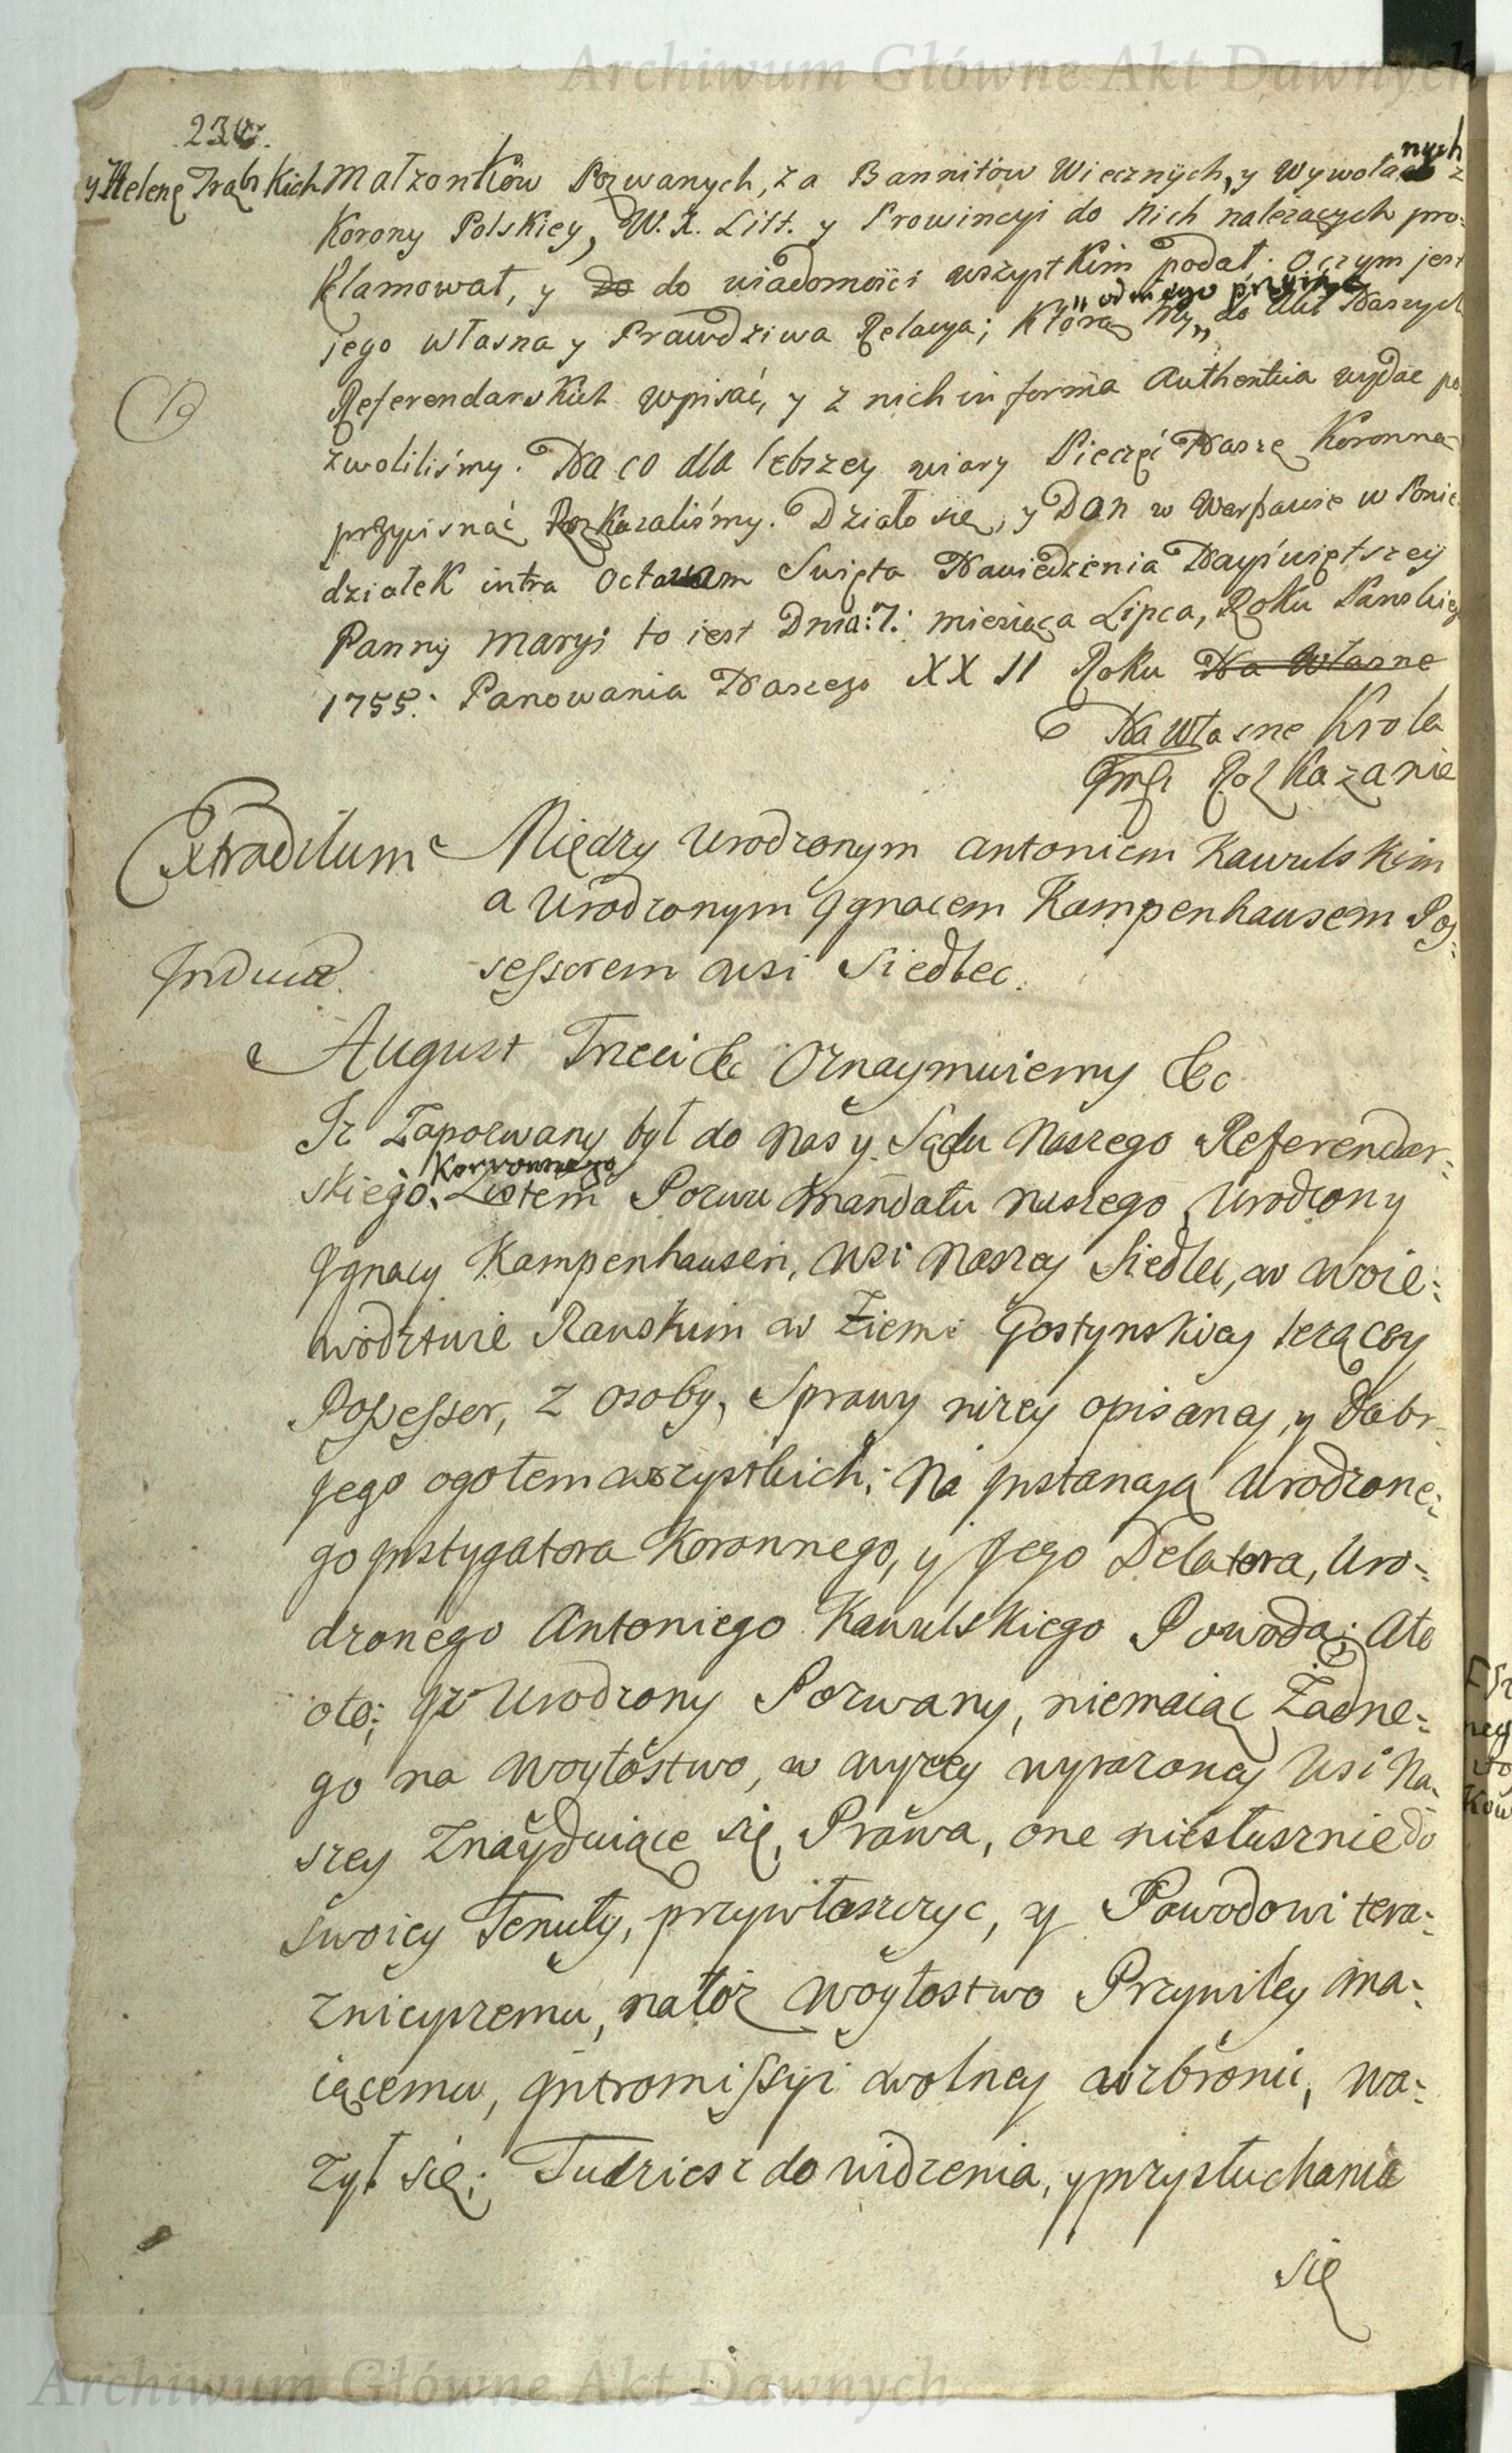 Archiwum Główne Akt Dawnych
y Helenę Trąbskich Małzonków Pozwanych, za Bannitów Wiecznych, y Wywołanych z
Korony Polskiey, W. X. Litt. y Prowincyi do nich należących pro-
klamował, y do do wiadomości wszystkim podał. Oczym jest
jego własna y Prawdziwa Relacya; Którą My „ od niego przyiętą „ do Akt Naszych
Referendarskich wpisać, y z nich in forma Authentica wydać po
zwoliliśmy. Na co dla lebszey wiary Pieczęć Naszę Koronną
przycisnąć Rozkazaliśmy. Działo się, y Dan w Warszawie w Ponie
działek intra Octavam Święta Nawiedzenia Nayświętszey
Panny Maryi to iest Dnia: 7: miesiąca Lipca, Roku Panskiego
1755: Panowania Naszego XX II Roku Na Własne
Na Własne Krola
Jmsi Rozkazanie
Extraditum Między Urodzonym Antonim Kawulskim
a Urodzonym Ignacem Kampenhausem Pos-
Induct. sessorem wsi Siedlec.
August Trzeci &c Oznaymuiemy &c
Iz Zapozwany był do Nas y Sądu Naszego Referendar-
skiego, Korronnego Listem Pozwu Mandatu naszego Urodzony
Ignacy Kampenhausen, wsi Naszey Siedlec, w woie-
wodztwie Rawskim w Ziemi Gostynskiey terazcey
Possessor, z osoby, Sprawy nizey opisaney, y Dobr
Jego ogołem wszystkich; Na Instancyą Urodzone-
go Instygatora Koronnego, y Jego Delatora, Uro-
dzonego Antoniego Kawulskiego Powoda; Ato
oto; Iz Urodzony Pozwany, niemaiąc Żadne-
go na Woytostwo, w wyzey wyrazoney wsi Na-
szey Znayduiące się, Prawa, one niesłusznie do
swoiey Tenuty, przywłaszczyc, y Powodowi tera-
znieyszemu, natoż Woytostwo Przywiley ma-
iącemu, Intromissyi wolney wzbronić, wa-
zył się; Tudziesz do widzenia, y przysłuchania
się
Archiwum Główne Akt Dawnych